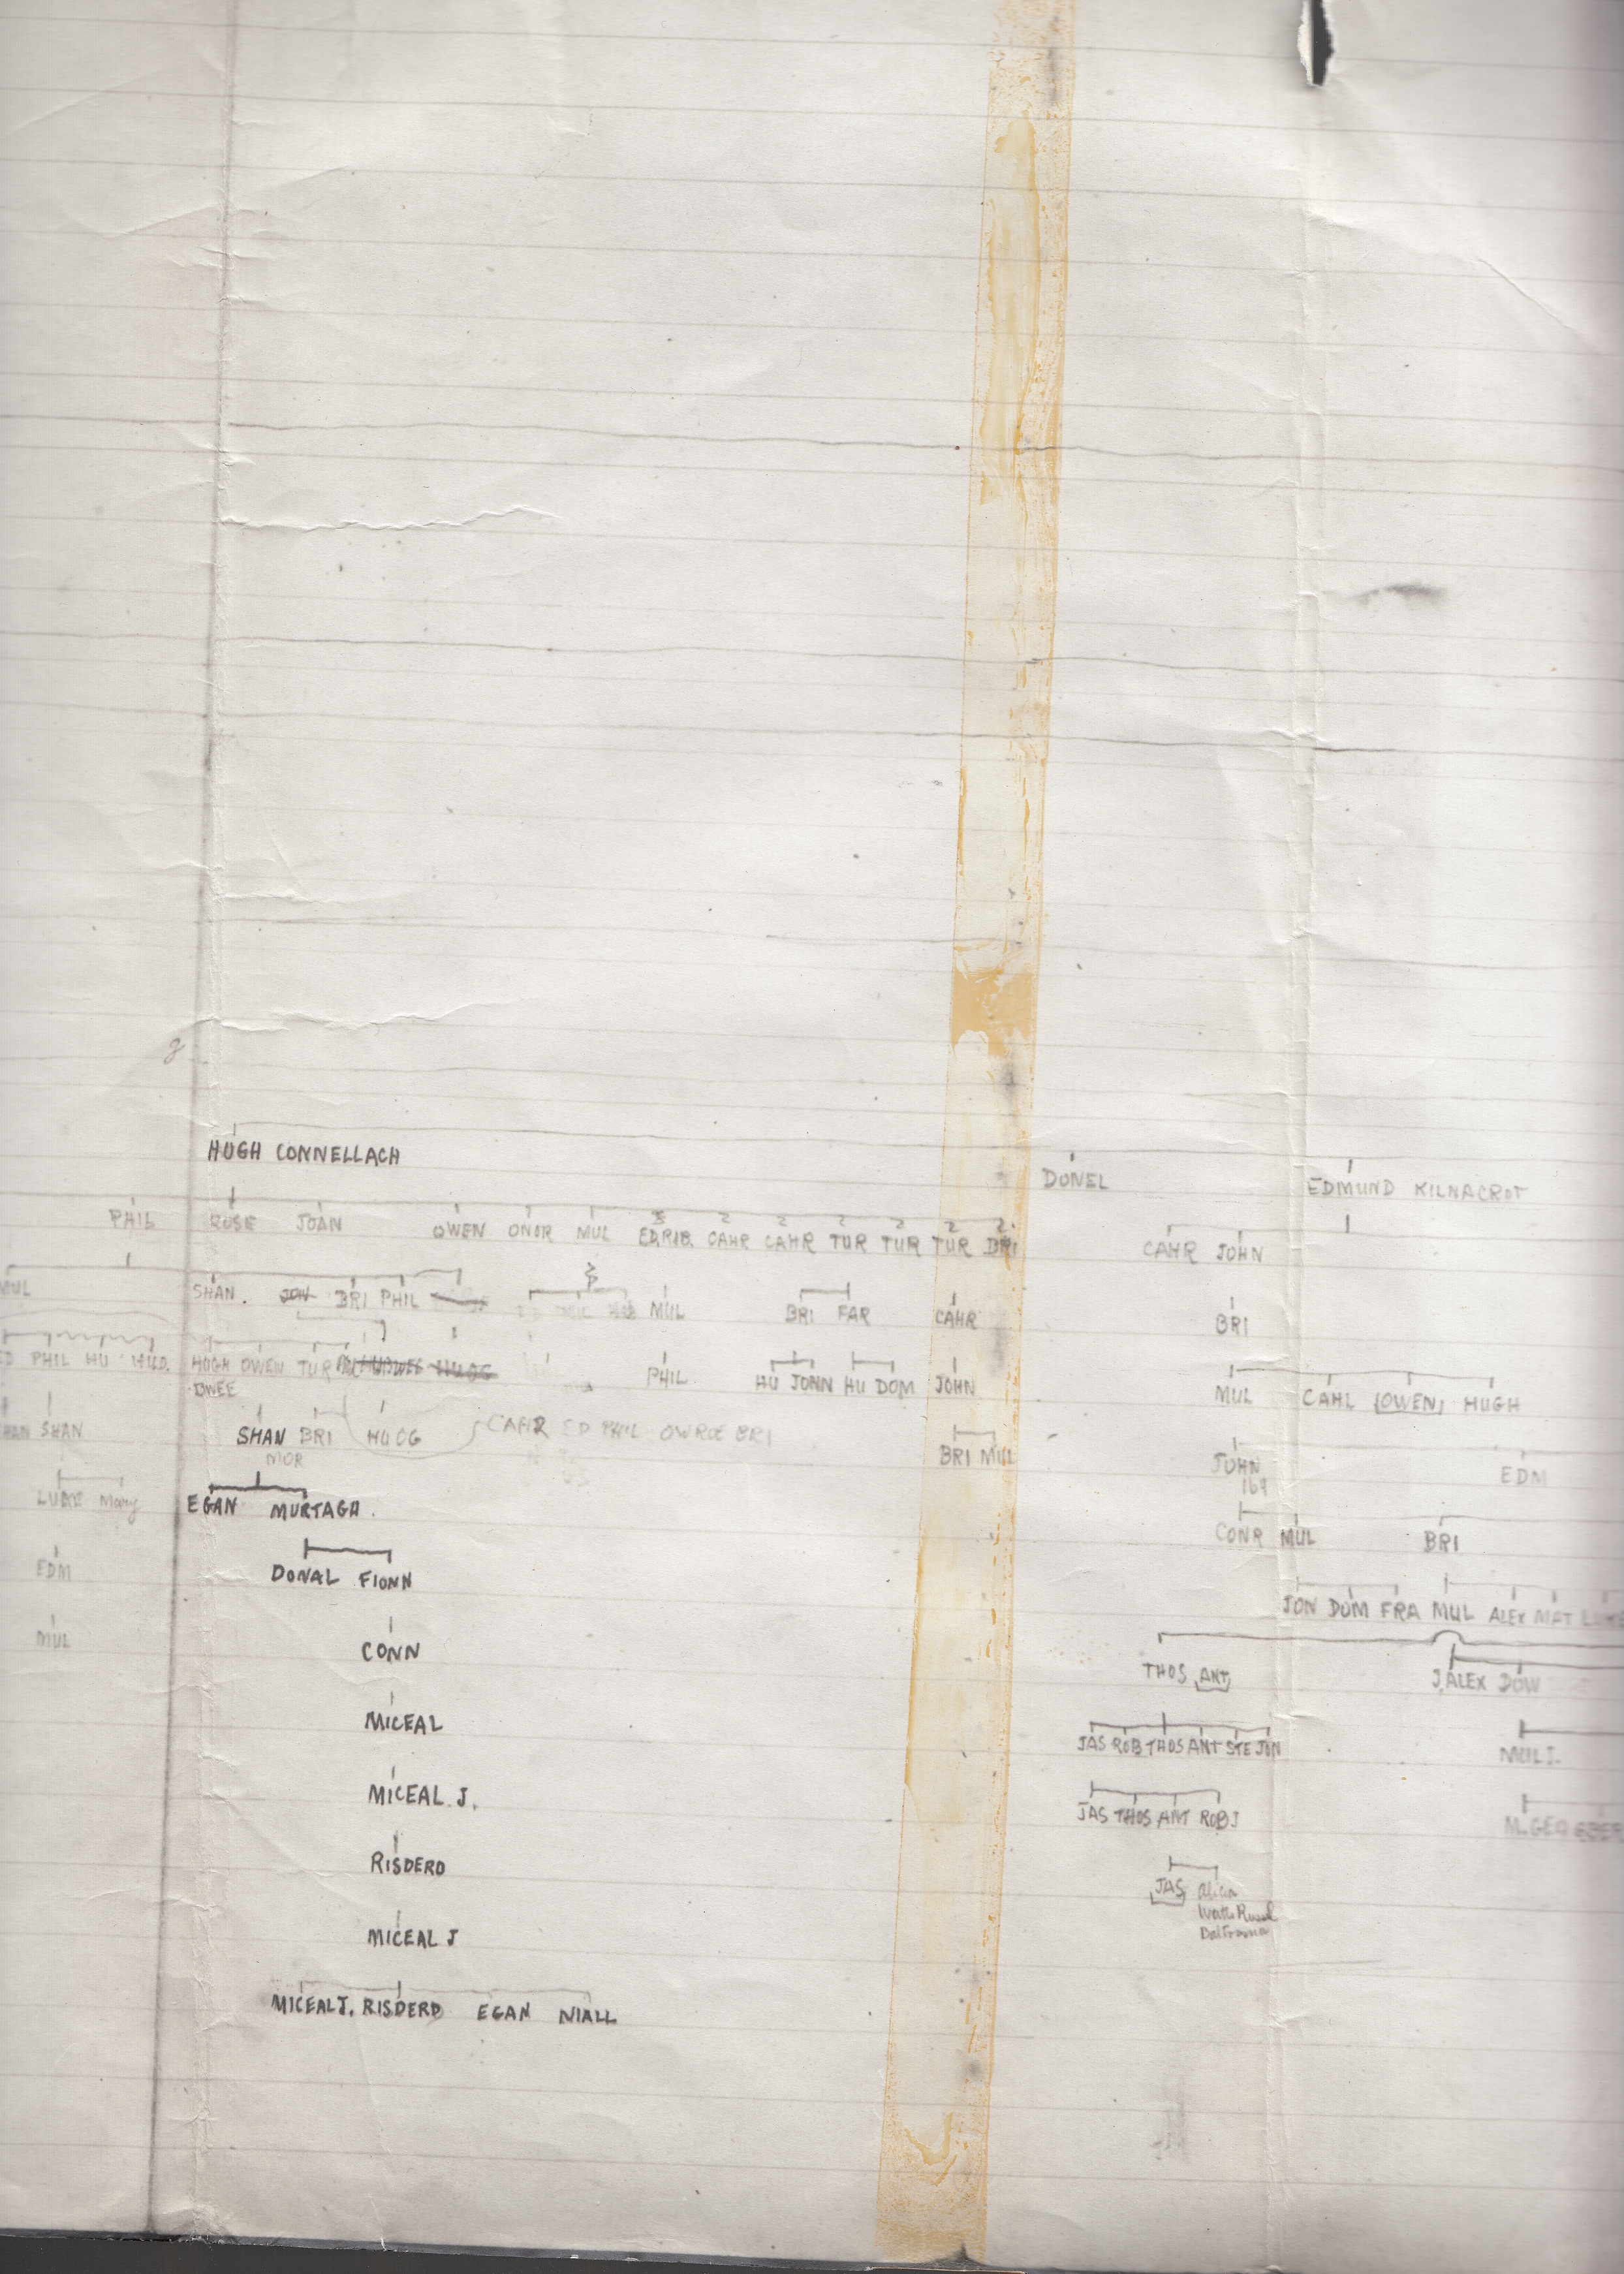 HUGH CONNELLACH
DONEL
EDMUND KILNACROT
PHIL ROSE JOAN OWEN ONOR MUL ED.RIB. CAHR CAHR TUR TUR TUR BRI
CAHR JOHN
MUL SHAN. JOH BRI PHIL MUL BRI FAR CAHR
BRI
ED PHIL HU HUD. HUGH OWEN TUR HUOG PHIL HU JOHN HU DOM JOHN
DWEE
MUL CAHL (OWEN) HUGH
SHAN SHAN BRI HUOG CAHR ED PHIL OWROE BRI
MOR
BRI MUL
JOHN EDM
169
LUKE Mary EGAN MURTAGH.
CONR MUL BRI
EDM DONAL FIONN
JON DOM FRA MUL ALEX MAT
MUL CONN
THOS ANT J.ALEX DOW
MICEAL
JAS ROB THOS ANT STE JON MUL J.
MICEAL J.
JAS THOS ANT ROB J M.GEO
RISDERD
JAS Alicia
Ballrania
MICEAL J
MICEAL J. RISDERD EGAN NIALL